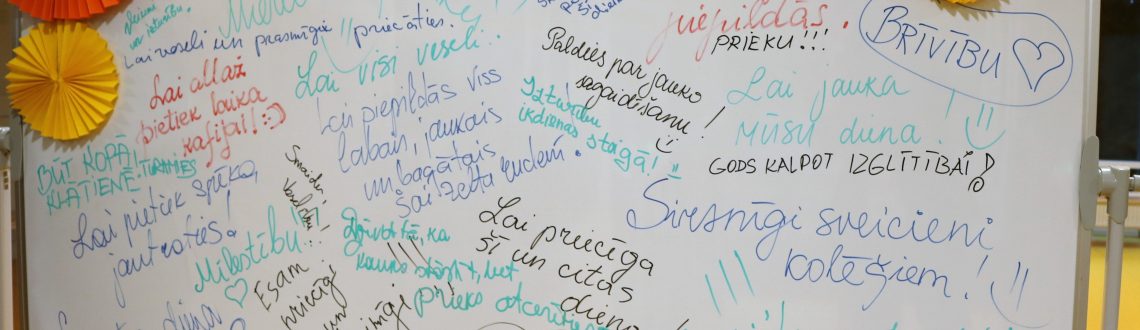 Lai veseli un prasmīgie priecāties.
piepildās.
PRIEKU!!!
BRĪVĪBU
Lai allaž
pietiek laika
kafijai! :)
Lai visi veseli!
Lai piepildās viss
labais, jaukais
un bagātais
šai zelta rudenī.
Paldies par jauko
sagaidīšanu!
Izturību
ikdienas staigā!
Lai jauka
MŪSU diena!
GODS KALPOT IZGLĪTĪBAI!
BŪT KOPĀ!
KLĀTIENĒ. TURAMIES
Lai pietiek spēka,
jautroties!
Smaidu!
Veselību!!
Mīlestību!!
Dzīvot tā, ka
kauns stāstīt, bet
prieks atcerēties
Esam
priecīgi
un
Lai priecīga
šī un citas
diena
Sirsnīgi sveicieni
kolēģiem!
diena